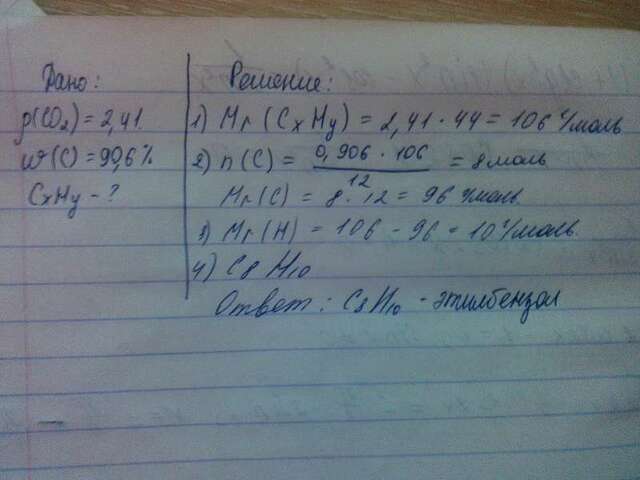 Дано:
ρ(CO₂) = 2,41.
w(C) = 90,6%
CxHy - ?
Решение:
1) Mr (CxHy) = 2,41 · 44 = 106 г/моль
2) n (C) = 0,906 · 106 / 12 = 8 моль
Mr (C) = 8 · 12 = 96 г/моль.
3) Mr (H) = 106 - 96 = 10 г/моль.
4) C8 H10
Ответ: C8H10 - этилбензол